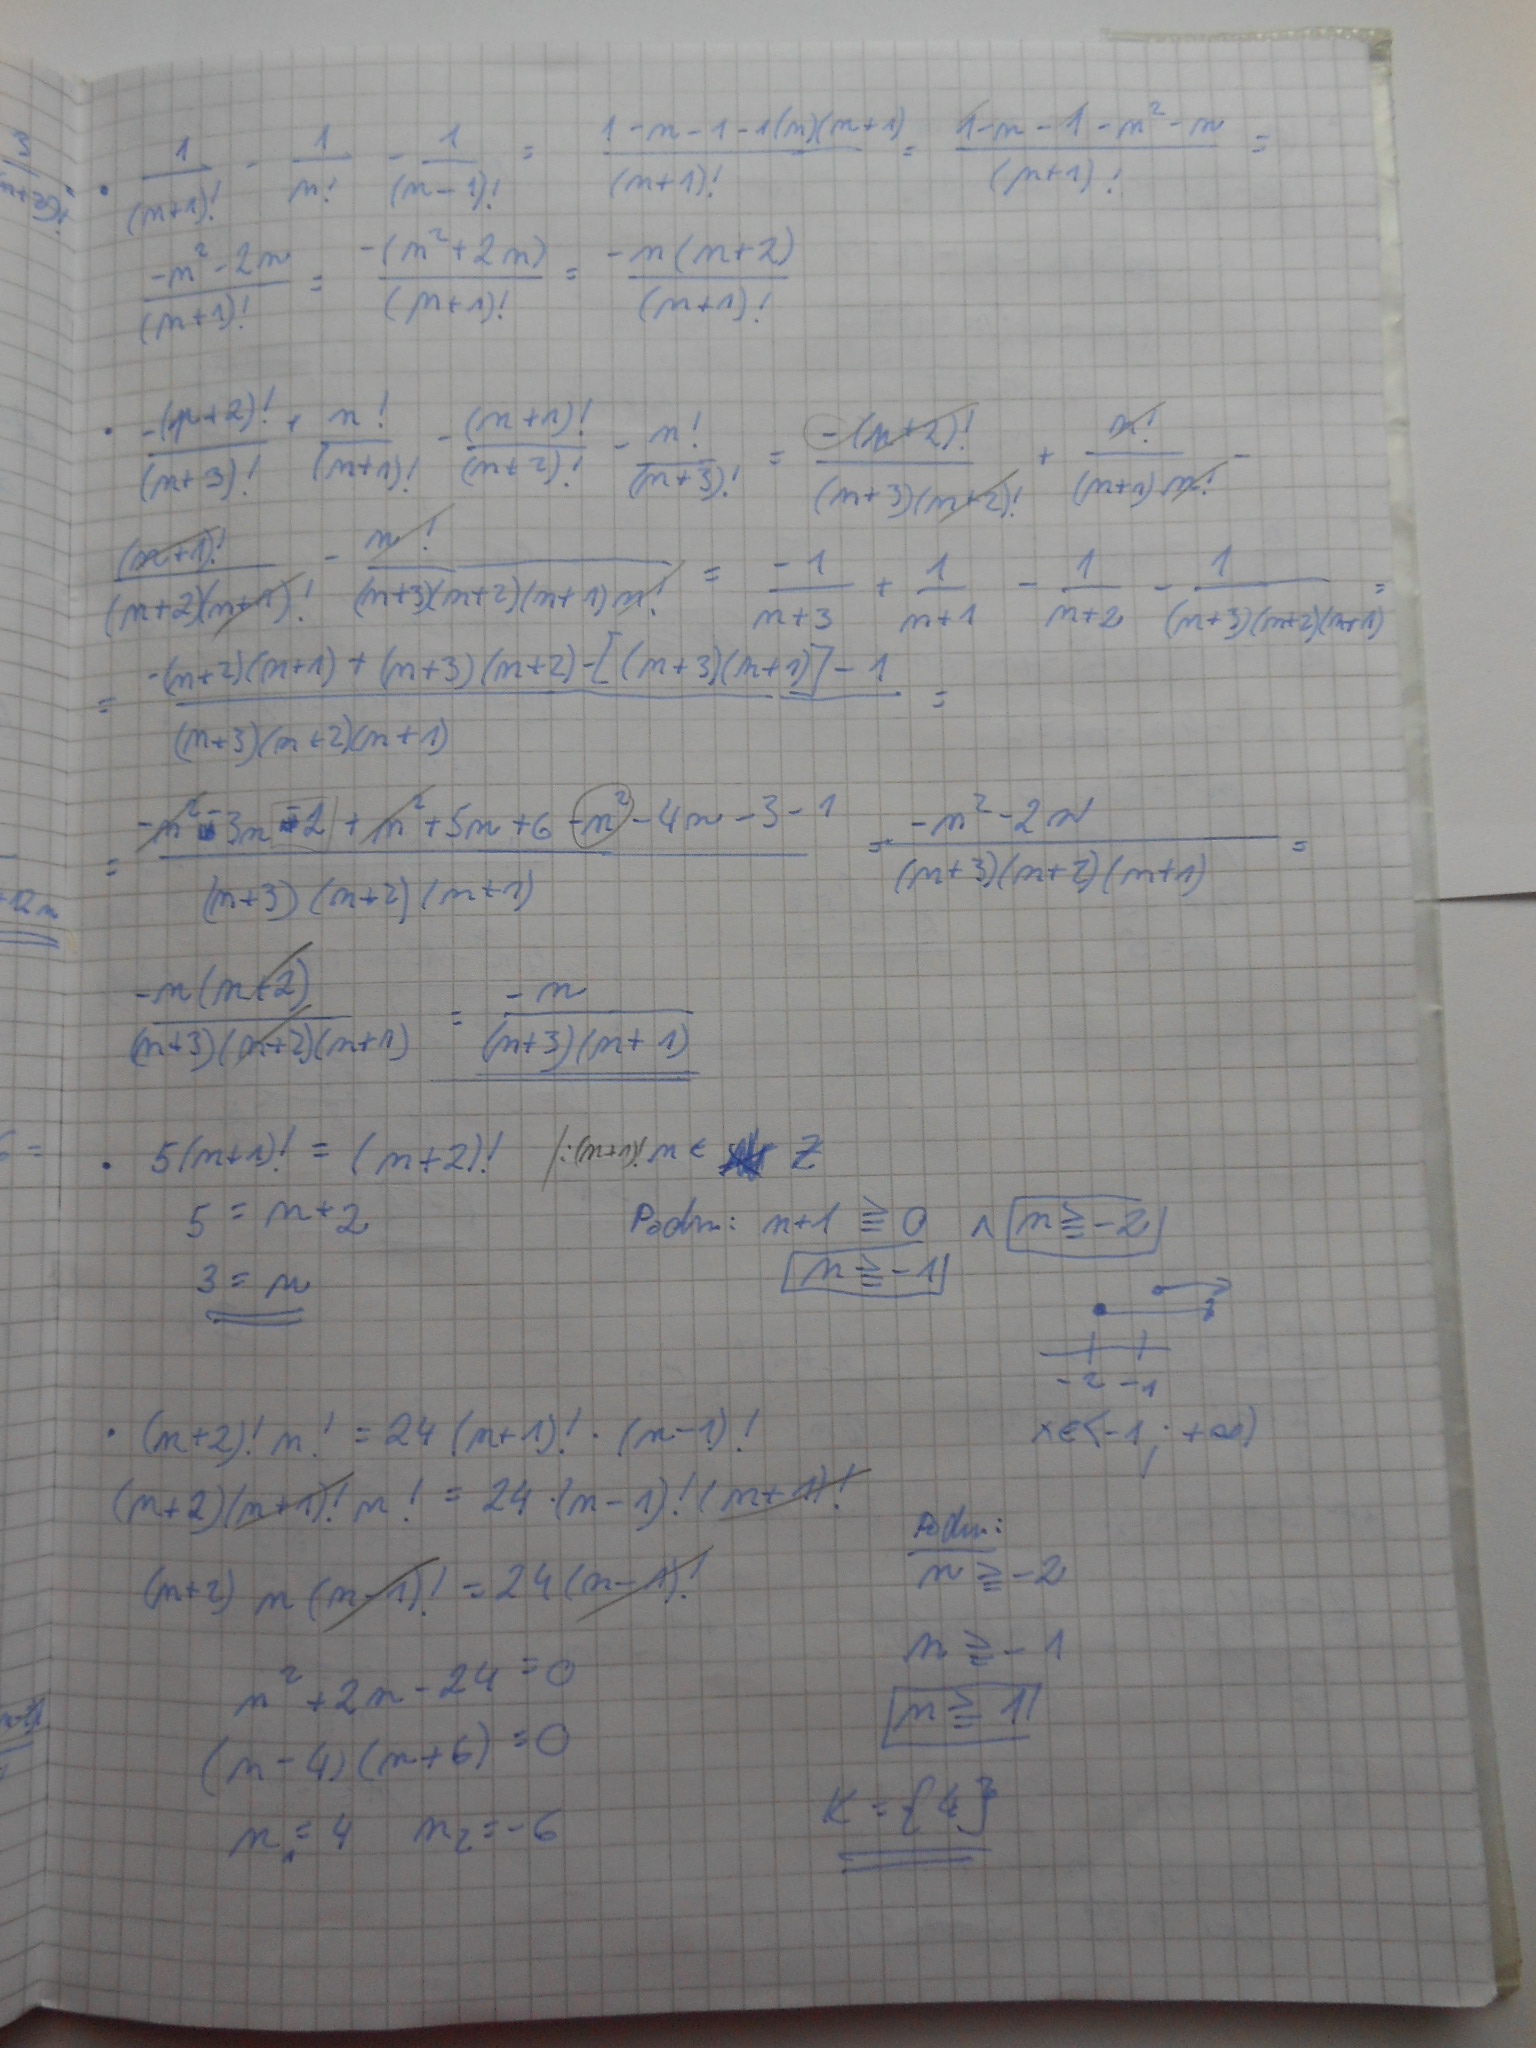 • 1/(n+1)! - 1/n! - 1/(n-1)! = (1-n-1-1(n)(n+1))/(n+1)! = (1-n-1-n²-n)/(n+1)! =
(-n²-2n)/(n+1)! = -(n²+2n)/(n+1)! = -n(n+2)/(n+1)!
• -(n+2)!/(n+3)! + n!/(n+1)! - (n+1)!/(n+2)! - n!/(n+3)! = -(n+2)!/(n+3)(n+2)! + n!/(n+1)n! -
(n+1)!/(n+2)(n+1)! - n!/(n+3)(n+2)(n+1)n! = -1/(n+3) + 1/(n+1) - 1/(n+2) - 1/(n+3)(n+2)(n+1) =
= (-(n+2)(n+1) + (n+3)(n+2) - [(n+3)(n+1)] - 1)/(n+3)(n+2)(n+1) =
= (-n² - 3n - 2 + n² + 5n + 6 - n² - 4n - 3 - 1)/(n+3)(n+2)(n+1) = (-n² - 2n)/(n+3)(n+2)(n+1) =
-n(n+2)/(n+3)(n+2)(n+1) = -n/(n+3)(n+1)
• 5(n+1)! = (n+2)! /:(n+1)! n ∈ Z
5 = n+2 Podm: n+1 ≧ 0 ∧ n ≧ -2
3 = n n ≧ -1
-2 -1
x∈<-1; +∞)
• (n+2)! n! = 24 (n+1)! · (n-1)!
(n+2)(n+1)! n! = 24 · (n-1)! (n+1)!
Podm:
n ≧ -2
(n+2) n (n-1)! = 24 (n-1)!
n ≧ -1
n² + 2n - 24 = 0
n ≧ 1
(n-4)(n+6) = 0
K = {4}
n₁ = 4 n₂ = -6